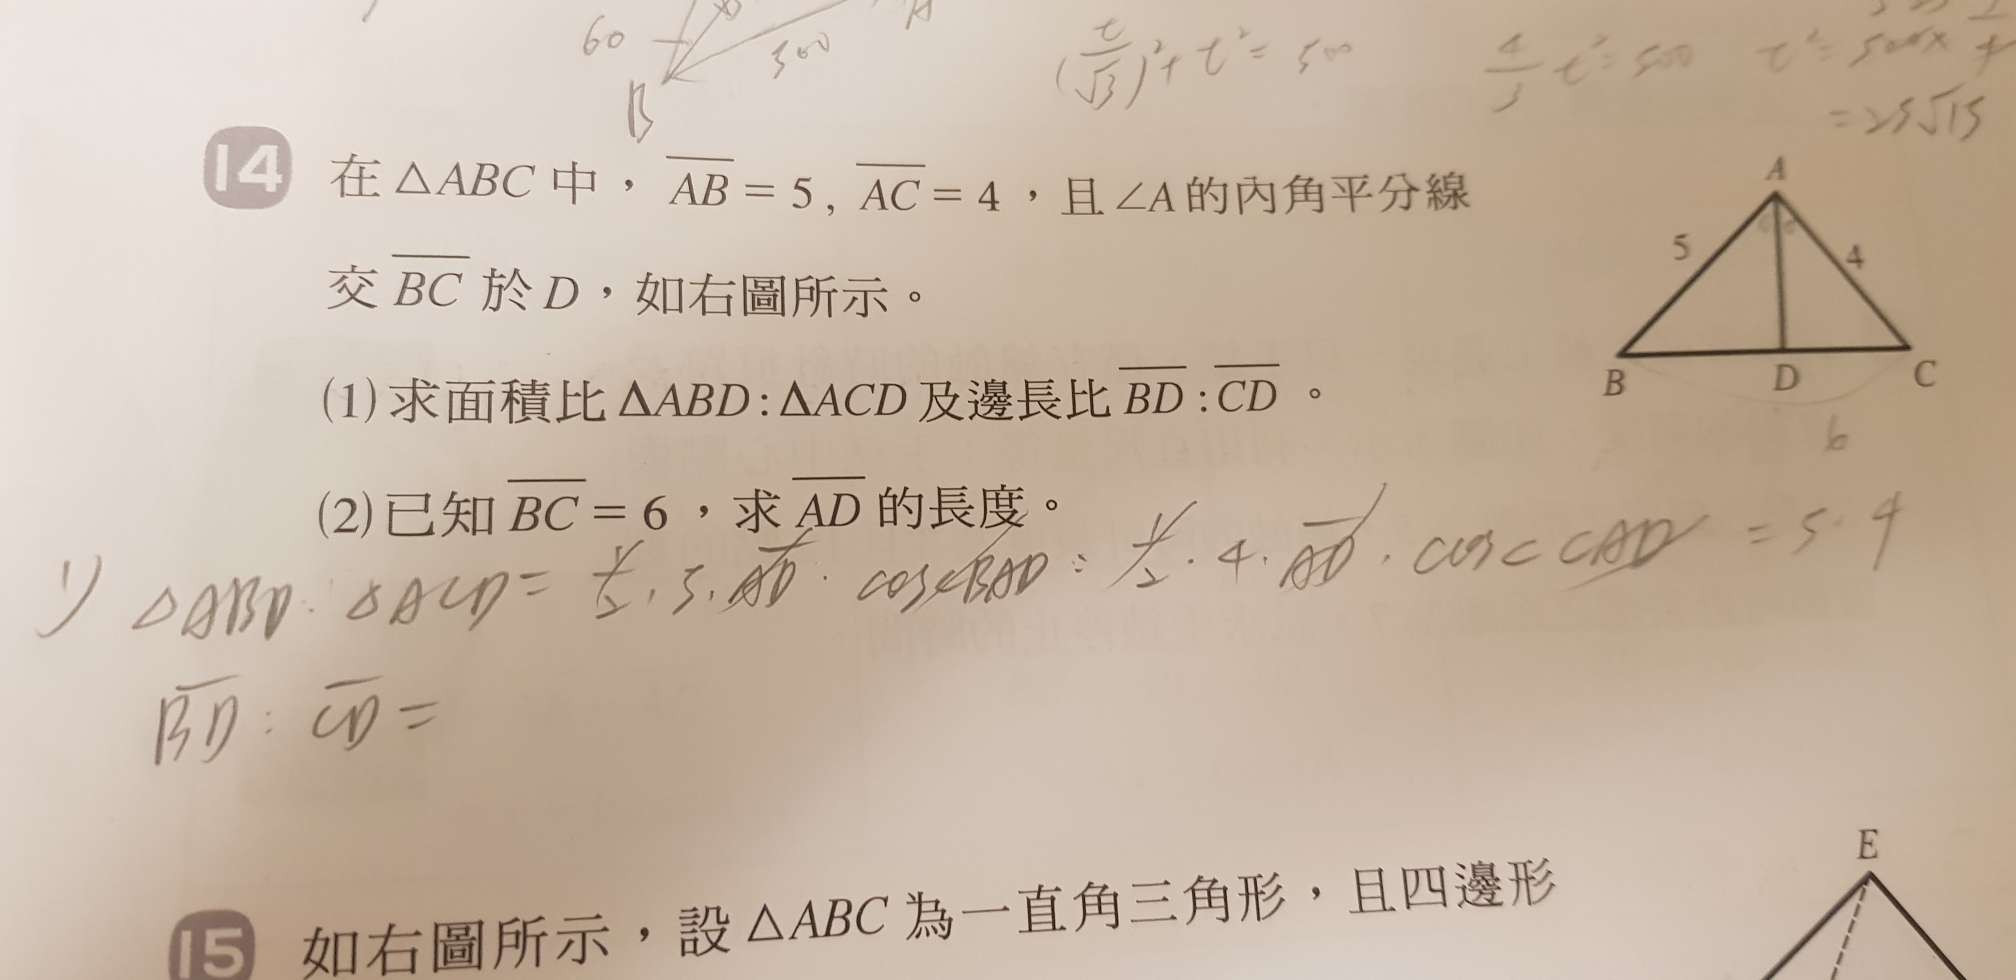 60
300
A
B
(t/√3)²+t²=500
4/3 t²=500
t²=500×
4
=25√15
14 在△ABC中，AB=5, AC=4，且∠A的內角平分線
交BC於D，如右圖所示。
(1)求面積比ΔABD:ΔACD及邊長比BD:CD。
(2)已知BC=6，求AD的長度。
A
5
4
B
D
C
6
1) △ABD:△ACD=1/2·5·AD·cos<BAD:1/2·4·AD·cos<CAD=5·4
BD:CD=
E
15 如右圖所示，設△ABC為一直角三角形，且四邊形